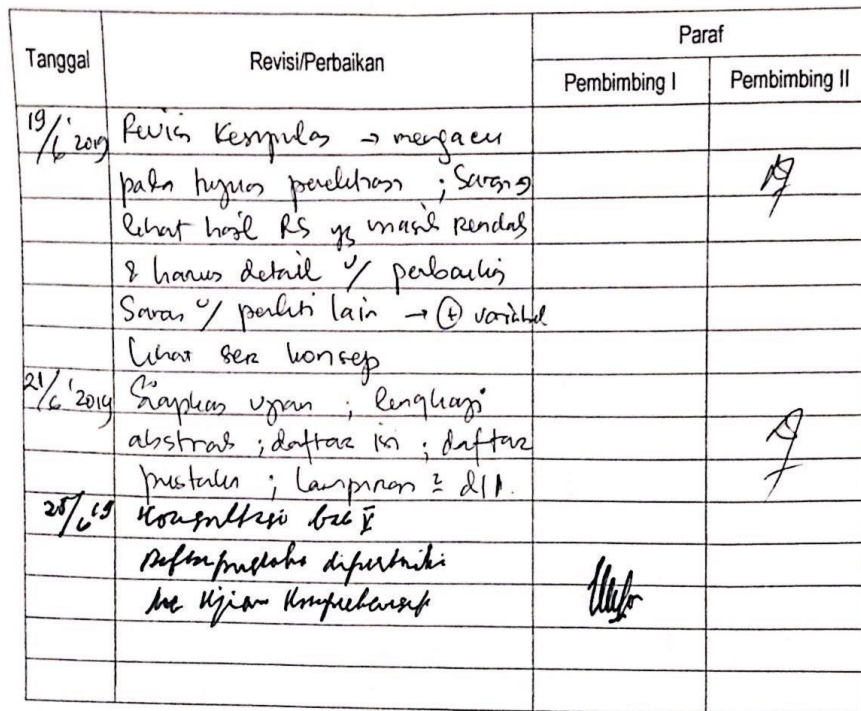 Tanggal Revisi/Perbaikan Paraf
Pembimbing I Pembimbing II
19/6 '2019 Revisi Kesimpulan → mengacu
pada tujuan penelitian ; Saran →
lihat hasil RS yg masih rendah
& harus detail u/ perbaikan
Saran u/ peneliti lain → (+) variabel
lihat konsep
21/6 '2019 Siapkan ujian ; lengkapi
abstrak ; daftar isi ; daftar
pustaka ; lampiran² dll.
/6 '19 Konsultasi bab V
Daftar pustaka diperbaiki
Acc Ujian Komprehensif